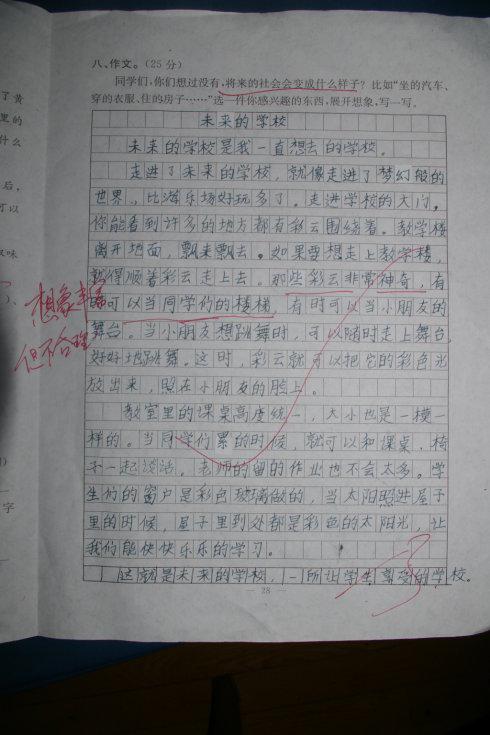 八、作文。(25分)
同学们,你们想过没有,将来的社会会变成什么样子?比如“坐的汽车、
穿的衣服、住的房子……”选一件你感兴趣的东西,展开想象,写一写。
未来的学校
未来的学校是我一直想去的学校。
走进了未来的学校,就像走进了梦幻般的
世界,比游乐场好玩多了。走进学校的大门,
你能看到许多的地方都有彩云围绕着。教学楼
离开地面,飘来飘去。如果要想走上教学楼,
就得顺着彩云走上去。那些彩云非常神奇,有
时可以当同学们的楼梯,有时可以当小朋友的
舞台。当小朋友想跳舞时,可以随时走上舞台,
好好地跳舞。这时,彩云就可以把它的彩色光
放出来,照在小朋友的脸上。
教室里的课桌高度统一,大小也是一模一
样的。当同学们累的时候,就可以和课桌、椅
子一起谈话。老师的留的作业也不会太多。学
生们的窗户是彩色玻璃做的,当太阳照进屋子
里的时候,屋子里到处都是彩色的太阳光,让
我们能快快乐乐的学习。
这就是未来的学校,一所让学生享受的学校。
28
想象丰富
但不合理
了黄
里的
什么
后,
可以
味
)、
字